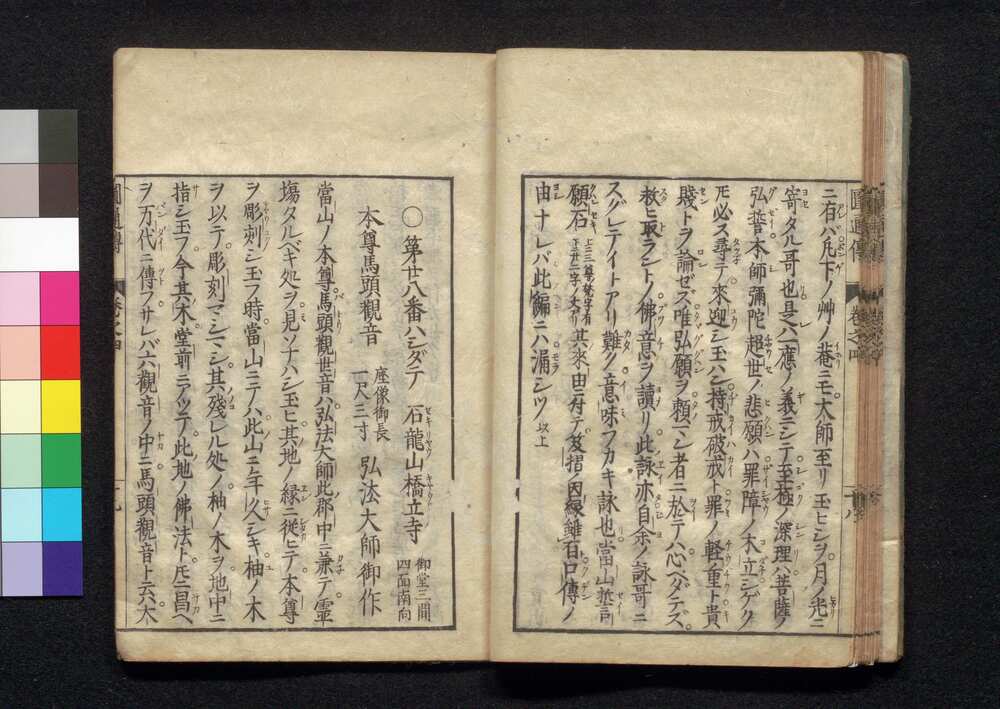 ニ有バ凡下ノ艸ノ菴ニモ大師至リ玉ヒシヲ月ノ光ニ
寄タル哥也是ハ一應ノ義ニシテ至極ノ深理ハ菩薩ノ
弘誓本師彌陀超世ノ悲願ハ罪障ノ木立シゲクトモ
必ス尋テ來迎シ玉ハン持戒破戒ト罪ノ軽ノ重ト貴
賤トヲ論ゼズ唯弘願ヲ頼マン者ニ於テハ心ヘダテス
救ヒ取ラントノ佛意ヲ讀リ此詠亦自余ノ詠哥ニ
スグレテイトアリ難ク意味フカキ詠也當山誓言
願石 其來由ニ付テ及摺ノ因縁雖百口傳ノ
由ナレバ此編ニハ漏シツ 以上
圓通傳 巻之四 十八
〇第廿八番ハシダテ 石龍山橋立寺 御堂三間 四面南向
本尊馬頭觀音 座像御長 一尺三寸 弘法大師御作
當山ノ本尊馬頭觀世音ハ弘法大師此郡中ニ兼テ霊
塲タルベキ処ヲ見ソナハシ玉ヒ其地ノ縁ニ従ヒテ本尊
ヲ彫刻シ玉フ時當山ニテハ此山ニ年久シキ柚ノ木
ヲ以テ彫刻マシマシ其殘レル処ノ柚ノ木ヲ地中ニ
指シ玉フ今其木堂前ニアツテ此地ノ佛法ト𪜈ニ昌ヘ
ヲ万代ニ傳フサレバ六觀音ノ中ニ馬頭觀音ト云ハ大
圓通傳 巻之四 十九